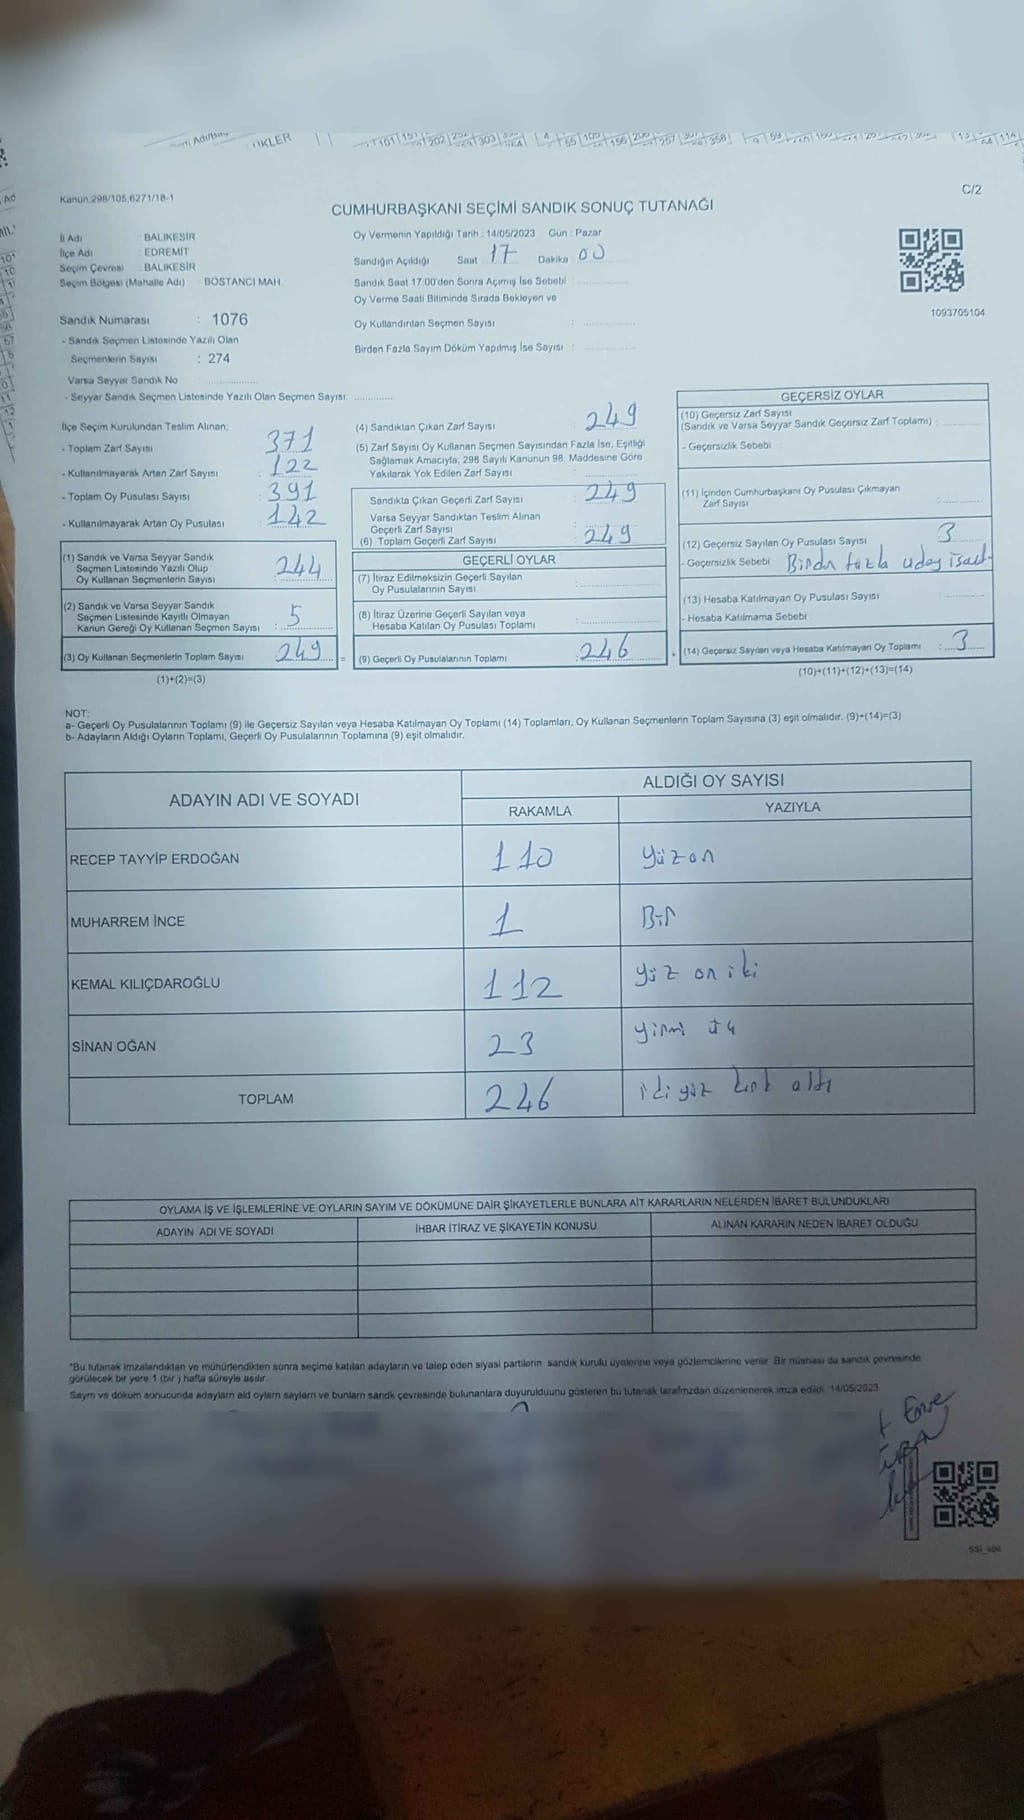 C/2
Kanun:298/105,6271/18-1
CUMHURBAŞKANI SEÇİMİ SANDIK SONUÇ TUTANAĞI
İl Adı : BALIKESİR
İlçe Adı : EDREMİT
Seçim Çevresi : BALIKESİR
Seçim Bölgesi (Mahalle Adı) BOSTANCI MAH.
Sandık Numarası : 1076
- Sandık Seçmen Listesinde Yazılı Olan
Seçmenlerin Sayısı : 274
Varsa Seyyar Sandık No
- Seyyar Sandık Seçmen Listesinde Yazılı Olan Seçmen Sayısı:
Oy Vermenin Yapıldığı Tarih : 14/05/2023 Gün : Pazar
Sandığın Açıldığı Saat 17 Dakika 00
Sandık Saat 17:00'den Sonra Açımış İse Sebebi
Oy Verme Saati Bitiminde Sırada Bekleyen ve
Oy Kullandırılan Seçmen Sayısı :
Birden Fazla Sayım Döküm Yapılmış İse Sayısı :
1093705104
İlçe Seçim Kurulundan Teslim Alınan;
- Toplam Zarf Sayısı : 371
- Kullanılmayarak Artan Zarf Sayısı : 122
- Toplam Oy Pusulası Sayısı : 391
- Kullanılmayarak Artan Oy Pusulası : 142
(1) Sandık ve Varsa Seyyar Sandık
Seçmen Listesinde Yazılı Olup
Oy Kullanan Seçmenlerin Sayısı : 244
(2) Sandık ve Varsa Seyyar Sandık
Seçmen Listesinde Kayıtlı Olmayan
Kanun Gereği Oy Kullanan Seçmen Sayısı : 5
(3) Oy Kullanan Seçmenlerin Toplam Sayısı : 249
(1)+(2)=(3)
(4) Sandıktan Çıkan Zarf Sayısı : 249
(5) Zarf Sayısı Oy Kullanan Seçmen Sayısından Fazla İse, Eşitliği
Sağlamak Amacıyla, 298 Sayılı Kanunun 98. Maddesine Göre
Yakılarak Yok Edilen Zarf Sayısı :
Sandıkta Çıkan Geçerli Zarf Sayısı : 249
Varsa Seyyar Sandıktan Teslim Alınan
Geçerli Zarf Sayısı :
(6) Toplam Geçerli Zarf Sayısı : 249
GEÇERLİ OYLAR
(7) İtiraz Edilmeksizin Geçerli Sayılan
Oy Pusulalarının Sayısı :
(8) İtiraz Üzerine Geçerli Sayılan veya
Hesaba Katılan Oy Pusulası Toplamı :
= (9) Geçerli Oy Pusulalarının Toplamı : 246
GEÇERSİZ OYLAR
(10) Geçersiz Zarf Sayısı
(Sandık ve Varsa Seyyar Sandık Geçersiz Zarf Toplamı) :
- Geçersizlik Sebebi :
(11) İçinden Cumhurbaşkanı Oy Pusulası Çıkmayan
Zarf Sayısı :
(12) Geçersiz Sayılan Oy Pusulası Sayısı : 3
- Geçersizlik Sebebi : Birden fazla aday
(13) Hesaba Katılmayan Oy Pusulası Sayısı :
- Hesaba Katılmama Sebebi :
+ (14) Geçersiz Sayılan veya Hesaba Katılmayan Oy Toplamı : 3
(10)+(11)+(12)+(13)=(14)
NOT:
a- Geçerli Oy Pusulalarının Toplamı (9) ile Geçersiz Sayılan veya Hesaba Katılmayan Oy Toplamı (14) Toplamları, Oy Kullanan Seçmenlerin Toplam Sayısına (3) eşit olmalıdır. (9)+(14)=(3)
b- Adayların Aldığı Oyların Toplamı, Geçerli Oy Pusulalarının Toplamına (9) eşit olmalıdır.
ADAYIN ADI VE SOYADI
ALDIĞI OY SAYISI
RAKAMLA YAZIYLA
RECEP TAYYİP ERDOĞAN 110 yüzon
MUHARREM İNCE 1 Bir
KEMAL KILIÇDAROĞLU 112 yüz on iki
SİNAN OĞAN 23 yirmi üç
TOPLAM 246 iki yüz kırk altı
OYLAMA İŞ VE İŞLEMLERİNE VE OYLARIN SAYIM VE DÖKÜMÜNE DAİR ŞİKAYETLERLE BUNLARA AİT KARARLARIN NELERDEN İBARET BULUNDUKLARI
ADAYIN ADI VE SOYADI İHBAR İTİRAZ VE ŞİKAYETİN KONUSU ALINAN KARARIN NEDEN İBARET OLDUĞU
*Bu tutanak imzalandıktan ve mühürlendikten sonra seçime katılan adayların ve talep eden siyasi partilerin sandık kurulu üyelerine veya gözlemcilerine verilir. Bir nüshası da sandık çevresinde
görülecek bir yere 1 (bir) hafta süreyle asılır.
Sayım ve döküm sonucunda adayların ald oyların sayların ve bunların sandk çevresinde bulunanlara duyurulduunu gösteren bu tutanak tarafmzdan düzenlenerek imza edildi. 14/05/2023
Emre